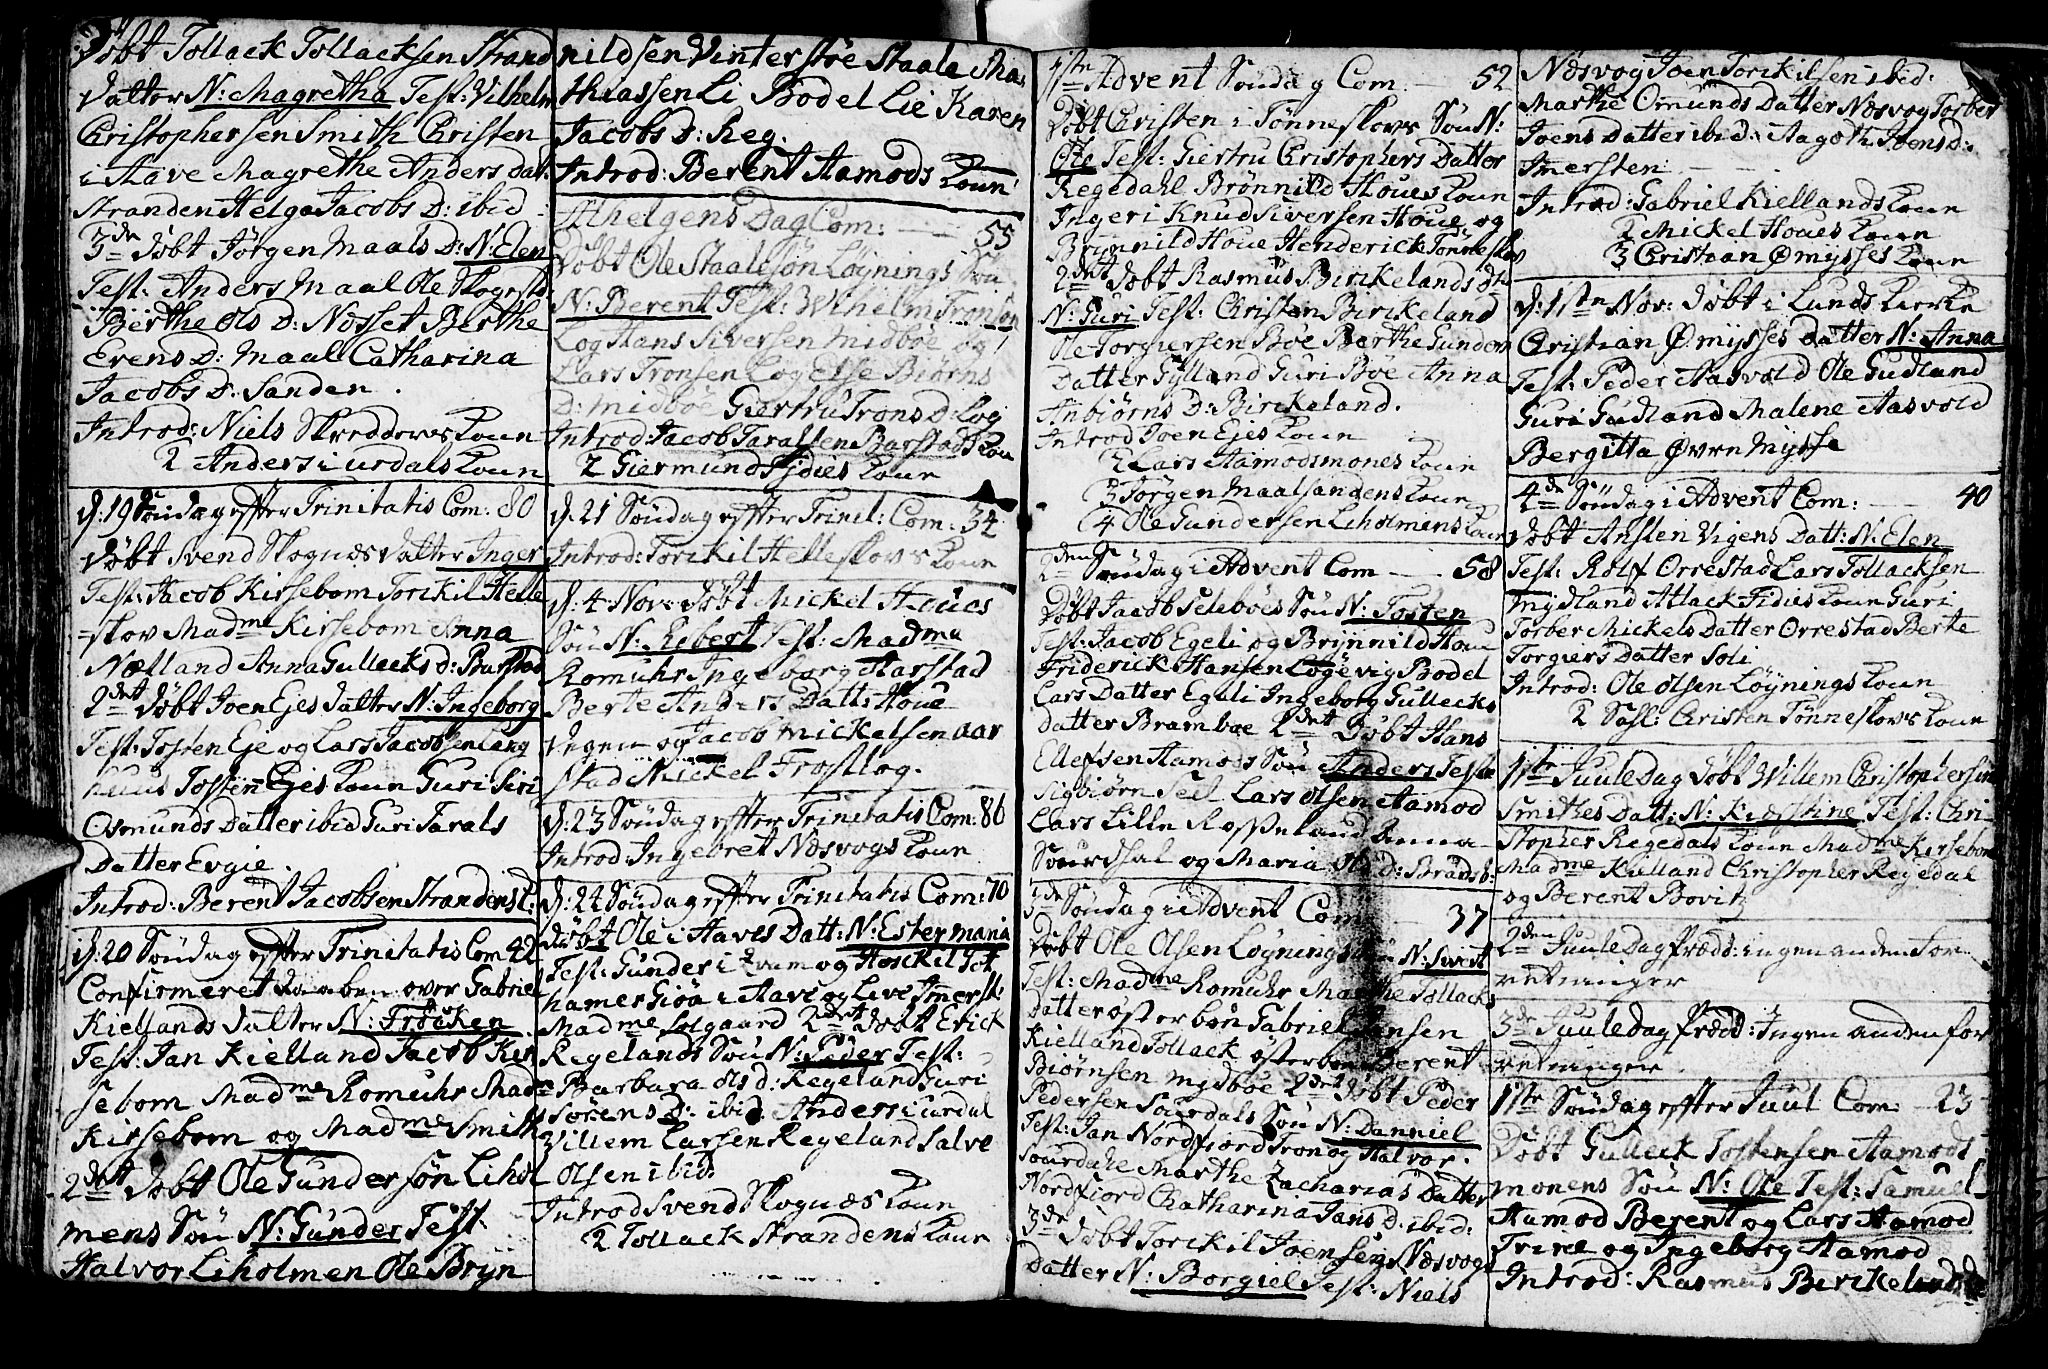 Döbt Tollack Tollacksen Strand
Datter N: Magretha Test: Vilhelm
Christophersen Smith Christen
i Aave Magrethe Anders Dat.
Stranden Helga Jacobs D: ibid
3de Döbt Jörgen Maals D: N: Elen
Test: Anders Maal Ole Skogestö
Berthe Ols D: Nösset Berthe
Evens D: Maal Catharina
Jacobs D: Sanden.
Introd: Niels Skredders Koun
2 Anders i urdals Koun
D: 19 Söndag effter Trinitatis Com: 80
Döbt Svend Skognæs Datter Inger
Test: Jacob Kirsebom Torckil Helle
=skov Madme Kirsebom Anna
Nætland Anna Gullecks d: Barstad
2det Döbt Joen Ejes Datter N: Ingeborg
Test: Tosten Eje og Lars Jacobsen Lang
huus Tosten Ejes Koun Guri Siri
Osmunds Datter ibid Guri Tarals
Datter Evgie.
Introd: Berent Jacobsen Strandens k:
D: 20 Söndag effter Trinitatis Com 42
Confirmeret daaben over Gabriel
Kiellands Datter N: Fröcken
Test: Jan Kielland Jacob Kir
sebom Madme Romuhr Madme
Kirsebom og Madme Smith
2det Döbt Ole Gundersön Lihol
mens Sön N: Gunder Test
Halvor Liholmen Ole Bryn
nildsen Vinterstöe Staale Ma
thiassen Li Bodel Lie Karen
Jacobs D: Reg.
Introd: Berent Aamods Koun
Alhelgens Dag Com: 55
Döbt Ole Staalesön Löynings Sön
N: Berent Test: Wilhelm Tronsön
Log Hans Siversen Midböe og
Lars Tronsen Log Else Biörns
D: Midböe Giertru Trons D: Log
Introd: Jacob Taralsen Barstads Kou
2 Giermund Fidies Koun
D: 21 Söndag effter Trinit: Com: 34
Introd: Torckil Helleskovs Koun
D: 4 Nov: Döbt Mickel Houes
Sön N: Eebert Test: Madme
Romuhr Ingeborg Harstad
Berte Anders Datt: Houe
Vegen og Jacob Mickelsen aar
stad Mickel Frostlog.
D: 23 Söndag effter Trinitatis Com: 86
Introd Ingebret Nösvogs Koun
D: 24 Söndag effter Trinitatis Com: 70
Döbt Ole i Aaves Datt: N: Ester Maria
Test: Gunder i Qvam og Hosckil Tot
hamer Giöa i Aave og Live Imerst:
Madme Solgaard 2det Döbt Erick
Regelands Sön N: Peder Test:
Barbara Ols d: Regeland Guri
Sörens D: ibid: Anders i urdal
Villem Larsen Regeland Salve
Olsen ibid:
Introd Svend Skognæs Koun
2 Tollack Strandens Koun
1ste Advent Söndag Com. 52
Döbt Christen i Tönneskovs Sön N:
Ole Test: Giertru Christophers Datter
Regedahl Brönnild Houes Koun
Ingeri Knud Siversen Houe og
Brynnild Houe Henderick Tönneskov
2det Döbt Rasmus Birckelands dtr
N: Guri Test: Christen Birckeland
Ole Torgiersen Böe Berthe Gunders
Datter Gylland Guri Böe Anna
Anbiörns D: Birckeland.
Introd Joen Ejes Koun
2 Lars Aamodsmones Koun
3 Jörgen Maalsandens Koun
4 Ole Gundersen Liholmens Koun
2den Söndag i Advent Com 58
Döbt Jacob Seleböes Sön N: Tosten
Test: Jacob Egeli og Brynnild Houe
Friderick Hansen Logevig Bodel
Lars Datter Egeli Ingeborg Gullecks
Datter Bramboe 2det Döbt Hans
Ellefsen Aamods Sön Anders Teste
Sigbiörn Seel Lars Olsen Aamod
Lars Lille Rosseland Anna
Souerdsal og Maria Ols d: Brådsb:
3de Söndag i Advent Com 37
Döbt Ole Olsen Löynings Sön N: Sivert
Test: Madme Romuhr Marthe Tollacks
Datter Österboe Gabriel Jansen
Kielland Tollack Österboe Berent
Biörnsen Mydböe 2det Döbt Peder
Pedersen Souerdals Sön N: Danniel
Test: Jan Nordfiord Tron og Halvor
Souerdahl Marthe Zacharias Datter
Nordfiord Chatharina Jans D: ibid:
3de Döbt Torckil Joensen Næsvogs
Datter N: Borgiel Test: Niels
Nösvog Joen Torckilsen ibid:
Marthe Omunds Datter Nösvog Torber
Joens Datter ibid: Aagoth Joens D:
Imersten:
Introd: Gabriel Kiellands Koun
2 Mickel Houes Koun
3 Christian Ömysses Koun
D: 11ten Nov: Döbt i Lunds Kircke
Christian Ömysses Datter N: Anna
Test: Peder Aasvold Ole Gudland
Guri Gudland Malene Aasvold
Bergitta Övren Mysse
4de Söndag i Advent Com: 40
Döbt Ansten Vigens Datt: N: Elen
Test: Rolf Orrestad Lars Tollacksen
Mydland Atlack Fidies Koun Guri
Torber Mickels Datter Orrestad Berte
Torgiers Datter Soli
Introd: Ole Olsen Löynings Koun
2 Sahl: Christen Tönneskovs Koun
1ste Juule Dag Döbt Willem Christophersens
Smithes Datt: N: Kirstine Test: Chri
stopher Regedals Koun Madme Kirsebom
Madme Kielland Christopher Regedal
og Berent Bovitz
2den Juule Dag præd: ingen anden For
retninger
3de Juule Dag præd: Ingen anden for
retninger.
1ste Söndag effter Juul Com: 23
Döbt Gulleck Tostensen Aamods
monens Sön N: Ole Test: Samuel
Aamod Berent og Lars Aamod
Trine og Ingeborg Aamod
Introd: Rasmus Birckelands k: